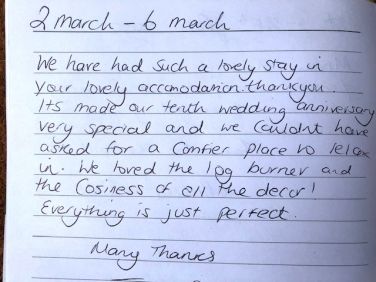 2 march - 6 march
We have had such a lovely stay in
your lovely accomodation. thankyou.
Its made our tenth wedding anniversary
very special and we couldnt have
asked for a comfier place to relax
in. We loved the log burner and
the cosiness of all the decor!
Everything is just perfect.
Many Thanks